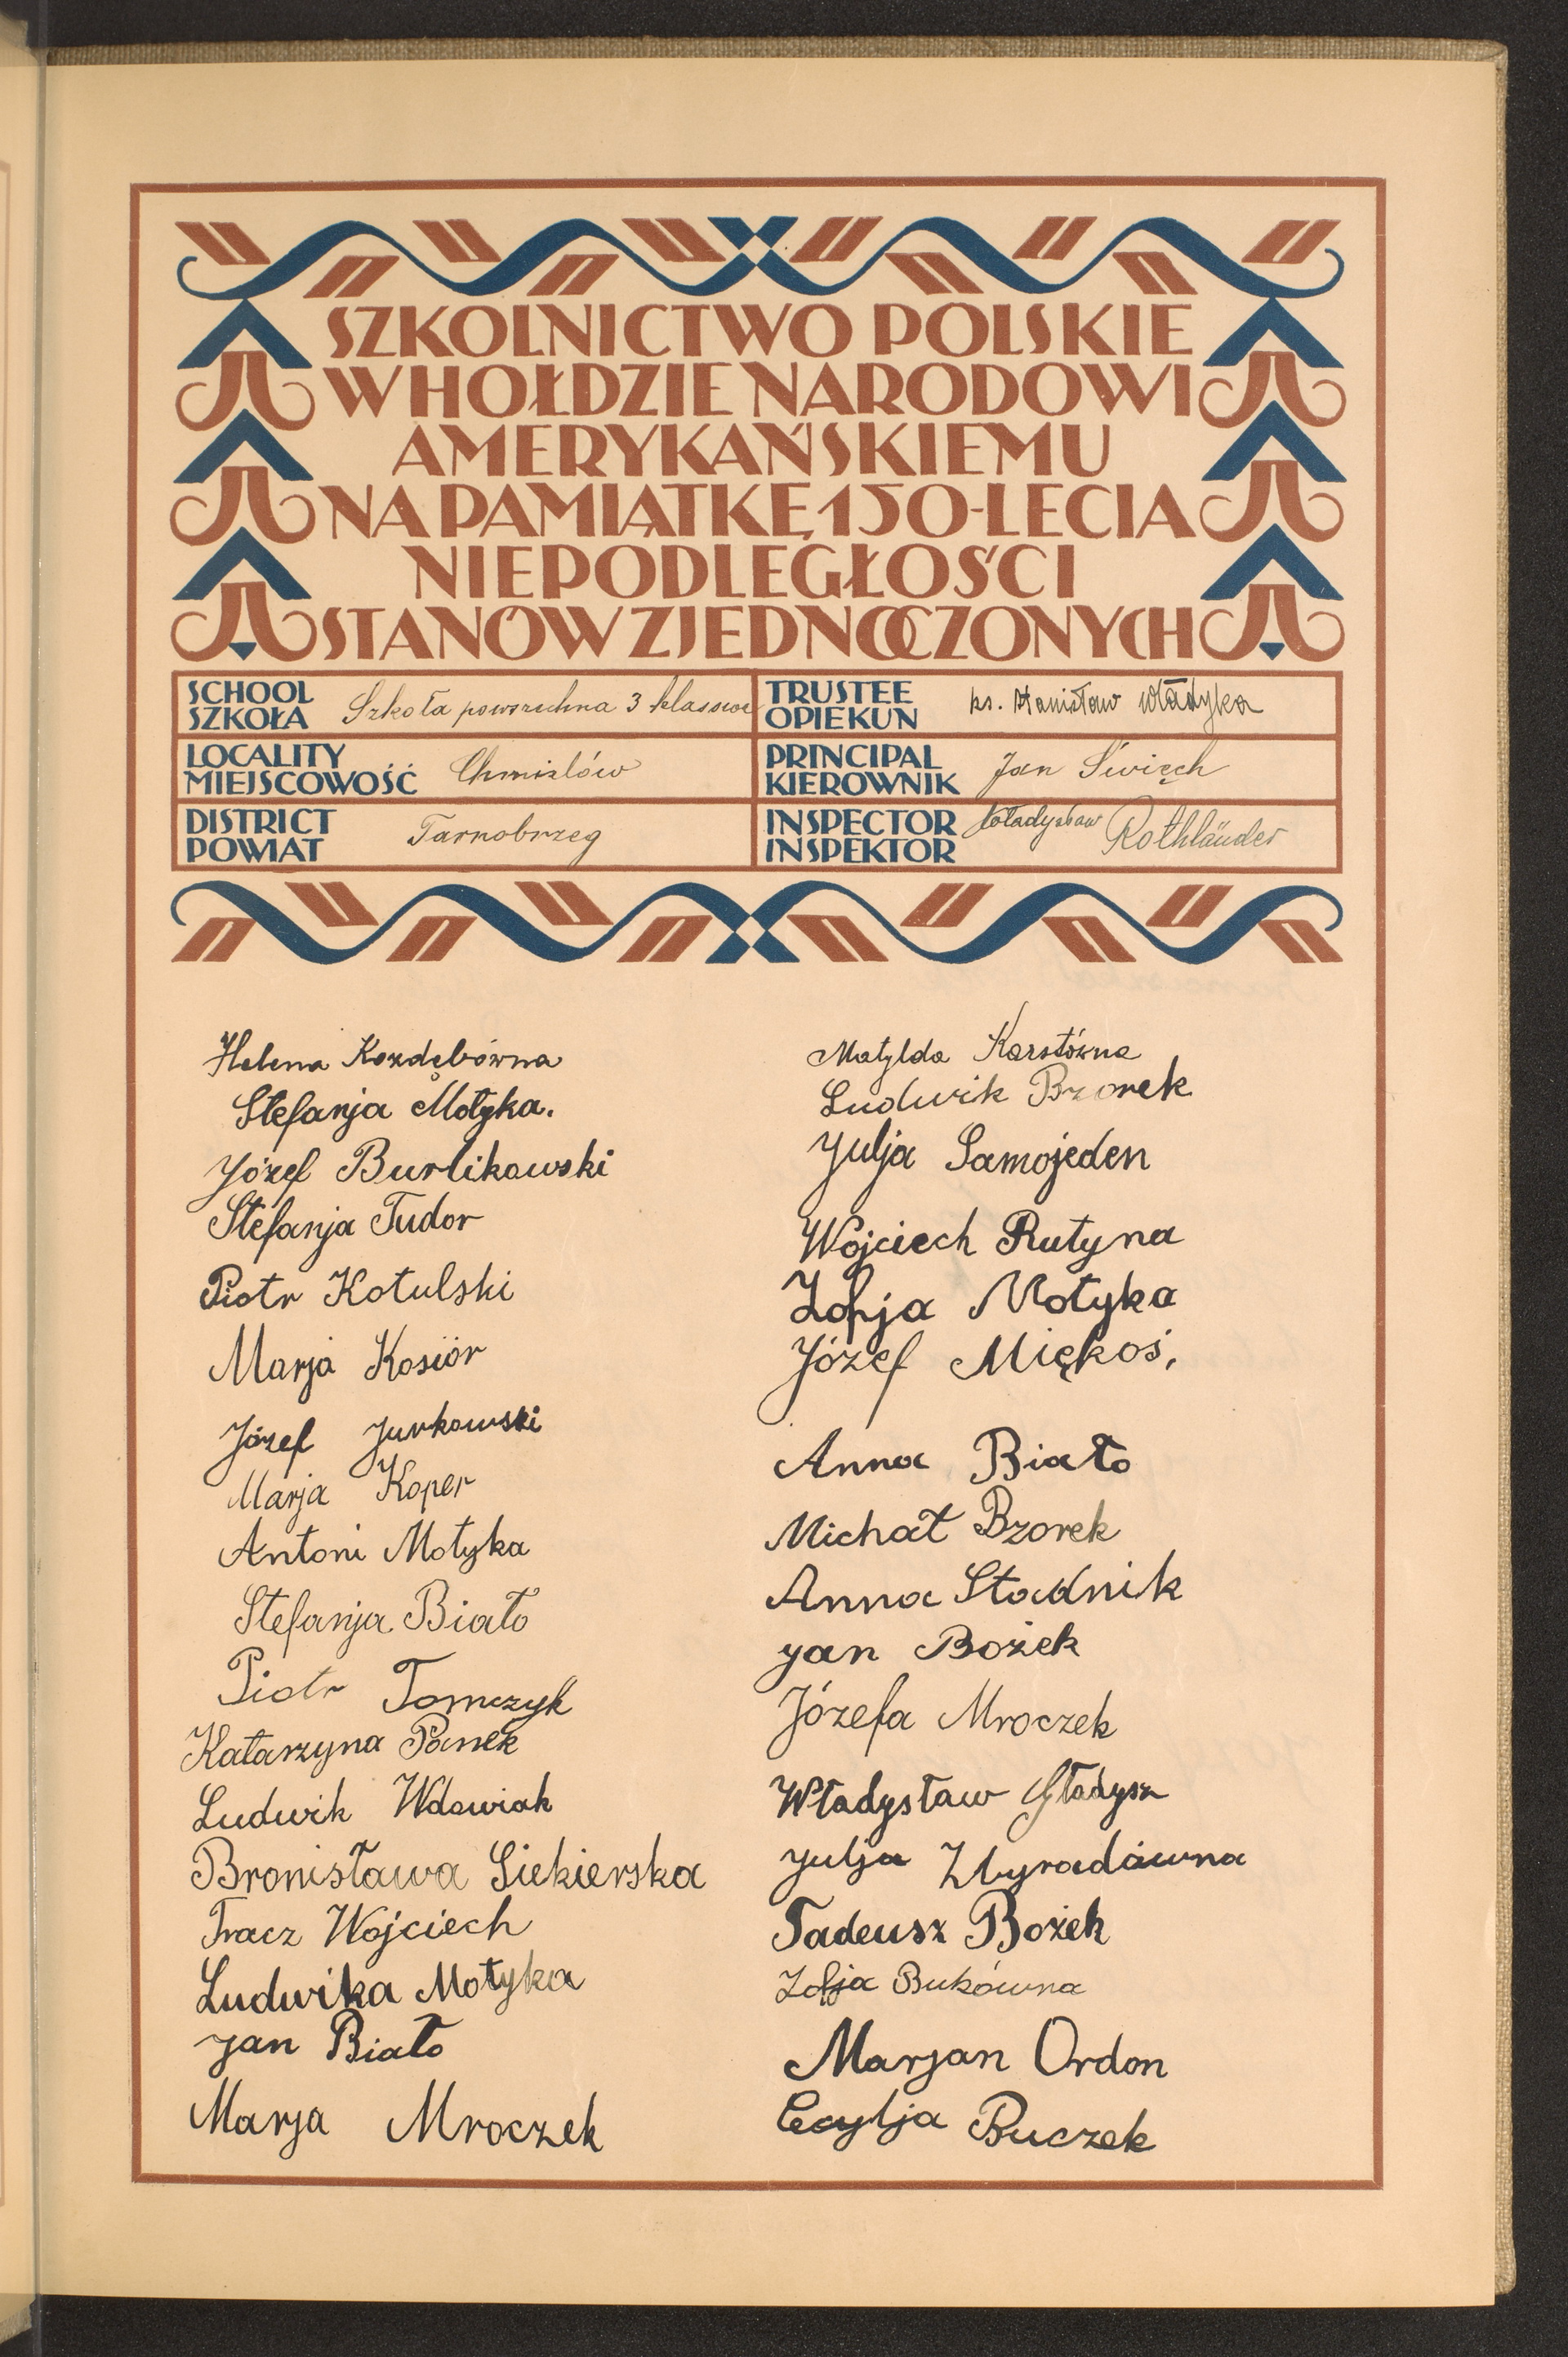 SZKOLNICTWO POLSKIE
W HOŁDZIE NARODOWI
AMERYKAŃSKIEMU
NA PAMIĄTKĘ 150-LECIA
NIEPODLEGŁOŚCI
STANÓW ZJEDNOCZONYCH
SCHOOL
SZKOŁA
Szkoła powszechna 3 klasowa
TRUSTEE
OPIEKUN
ks. Stanisław Władyka
LOCALITY
MIEJSCOWOŚĆ
Chmielów
PRINCIPAL
KIEROWNIK
Jan Święch
DISTRICT
POWIAT
Tarnobrzeg
INSPECTOR
INSPEKTOR
Władysław Rothländer
Helena Kozdębówna
Stefanja Motyka.
Józef Burlikowski
Stefanja Tudor
Piotr Kotulski
Marja Kosiór
Józef Jurkowski
Marja Koper
Antoni Motyka
Stefanja Biało
Piotr Tomczyk
Katarzyna Panek
Ludwik Wdowiak
Bronisława Siekierska
Tracz Wojciech
Ludwika Motyka
Jan Biało
Marja Mroczek
Matylda
Ludwik Bzorek
Julja Samojeden
Wojciech Rutyna
Zofja Motyka
Józef Miękoś,
Anna Biało
Michał Bzorek
Anna Stadnik
Jan Bożek
Józefa Mroczek
Władysław Gładysz
Julja
Tadeusz Bożek
Zofja Bukówna
Marjan Ordon
Cecylja Buczek